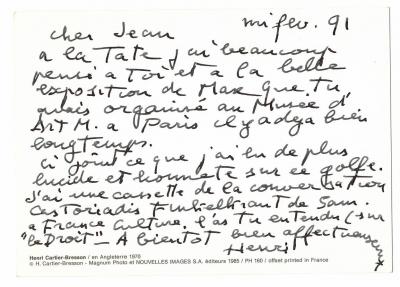 mi fev. 91
cher Jean
a la Tate j'ai beaucoup
pensé a Toi et a la belle
exposition de Max que tu
avais organisé au Musée d'
Art M. a Paris il y a deja bien
longtemps.
ci joint ce que j'ai lu de plus
lucide et honnete sur ce golfe.
J'ai une cassette de la conversation
Castoriadis Finkielkraut de Sam.
a France Culture. l'as tu entendu (sur
"le Droit" _ A bientot bien affectueusement
Henri
Henri Cartier-Bresson / en Angleterre 1970
© H. Cartier-Bresson - Magnum Photo et NOUVELLES IMAGES S.A. éditeurs 1985 / PH 160 / offset printed in France